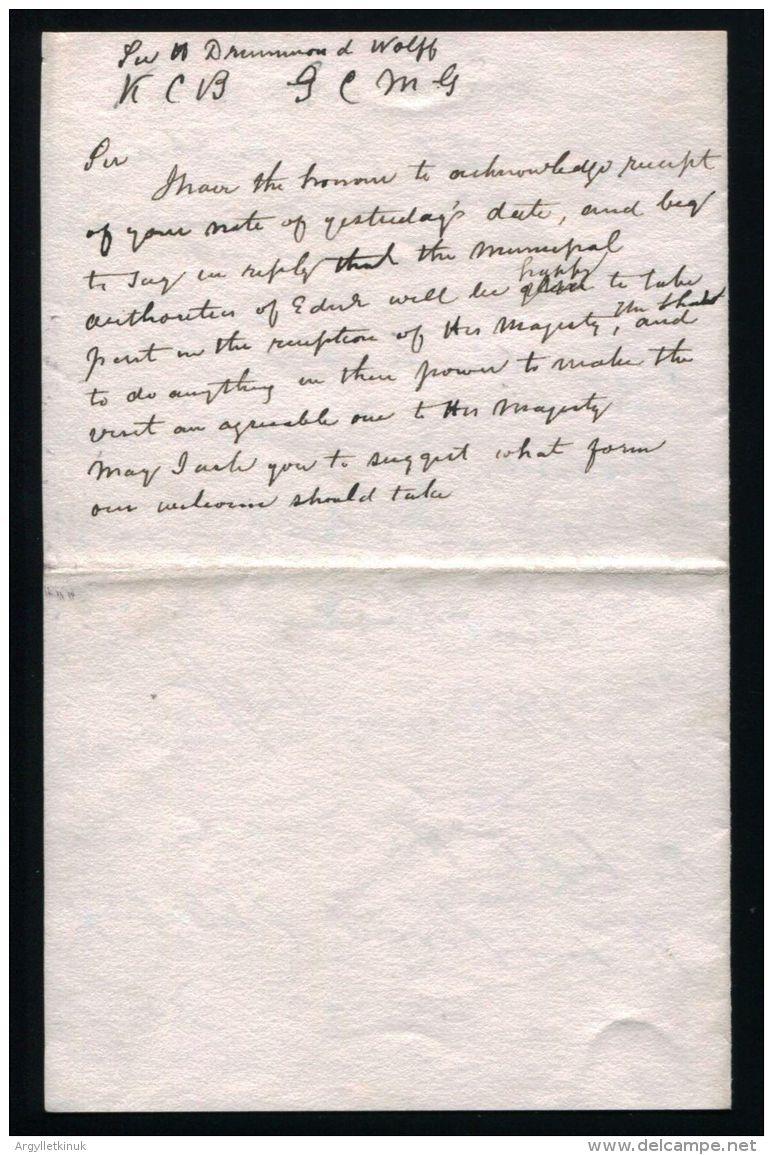 Sir H Drummond Wolff
K C B G C M G
Sir
I have the honour to acknowledge receipt
of your note of yesterday's date, and beg
to say in reply that the Municipal
authorities of Edinr will be happy to take
part in the reception of His Majesty, the Shah and
to do anything in their power to make the
visit an agreeable one to His Majesty
May I ask you to suggest what form
our welcome should take
Argylletkinuk
www.delcampe.net